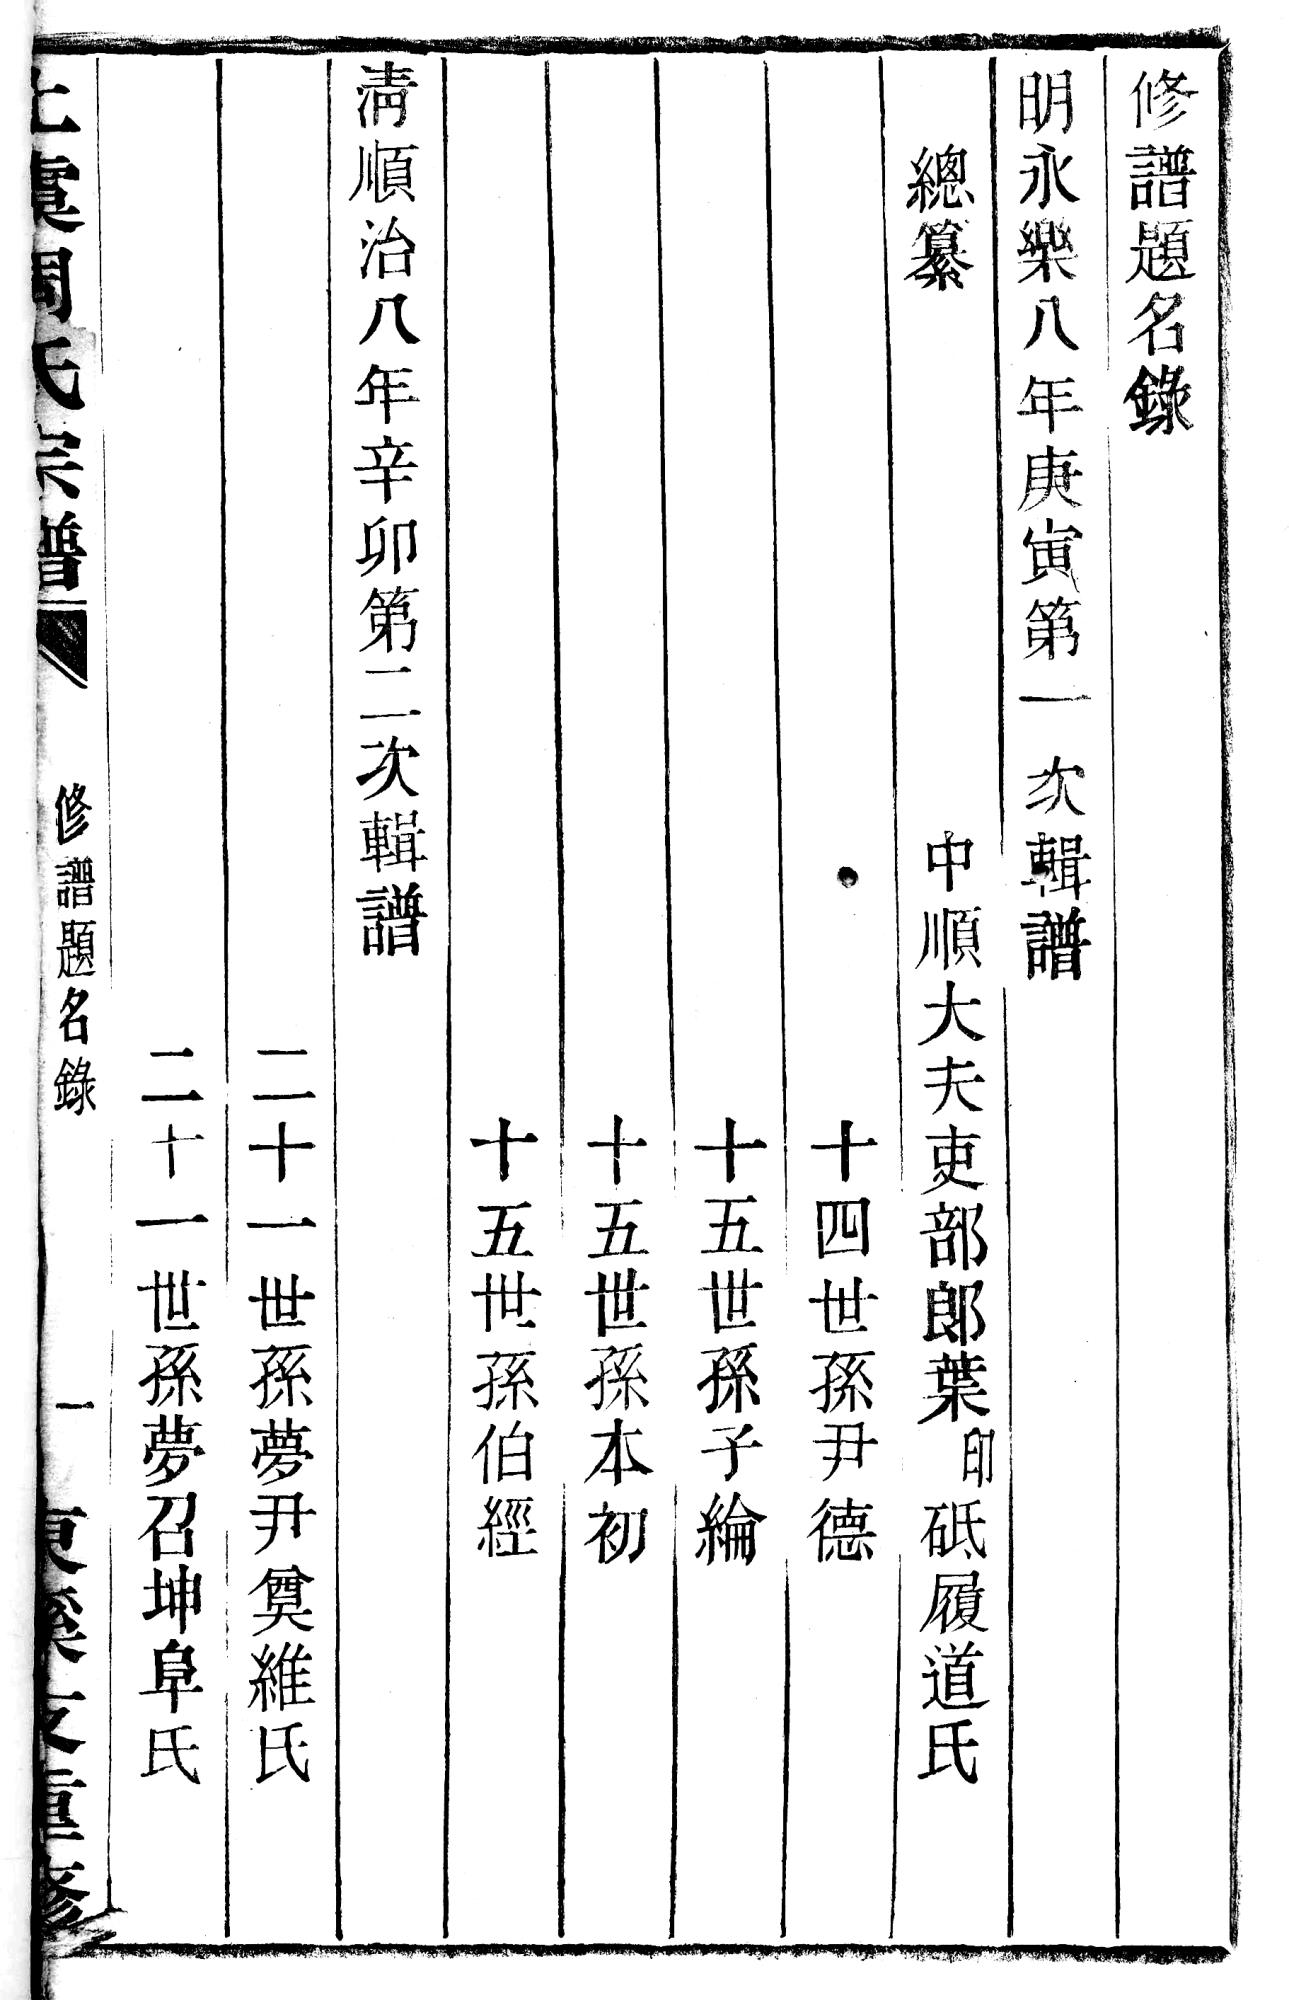 修譜題名錄
明永樂八年庚寅第一次輯譜
總纂 中順大夫吏部郎葉印砥履道氏
十四世孫尹德
十五世孫子綸
十五世孫本初
十五世孫伯經
淸順治八年辛卯第二次輯譜
二十一世孫夢尹奠維氏
二十一世孫夢召坤阜氏
上虞周氏宗譜 修譜題名錄 一 東溪支重修